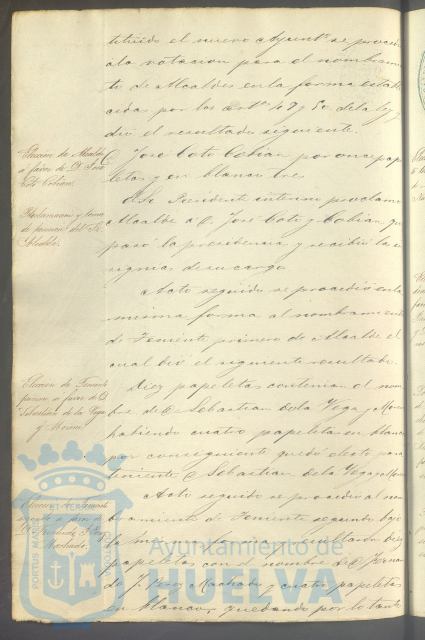 tituido el nuevo Ayunt.º se procedió
a la votacion para el nombramien
to de Alcaldes en la forma estable
cidas por los art.os 49 y 50 de la ley y
dió el resultado siguiente.
Eleccion de Alcalde
a favor de D. José
Coto Cobian
D. José Coto Cobian por once pape
letas y en blanco tres.
Proclamacion y toma
de posesion del Sr.
Alcalde
El Sr. Presidente interino proclamo
Alcalde a D. José Coto y Cobian, que
pasó la presidencia y recibió las in
signias de su cargo
Acto seguido se procedió en la
misma forma al nombramiento
de Teniente primero de Alcalde el
cual dió el siguiente resultado.
Eleccion de Teniente
primero a favor de D.
Sebastian de la Vega
y Moreno
Diez papeletas contenian el nom
bre de D. Sebastian de la Vega y Moreno
habiendo cuatro papeletas en blanco
por consiguiente quedó electo para
teniente D. Sebastian de la Vega y Moreno
Eleccion de Teniente
segundo a favor de
Machado
Acto seguido se procedio al nom
bramiento de Teniente segundo bajo
la misma forma resultando diez
papeletas con el nombre de D. Fernan
do Machado y cuatro papeletas
en blanco, quedando por lo tanto
PORTUS MARIS
ET TERRAE
Ayuntamiento de
HUELVA